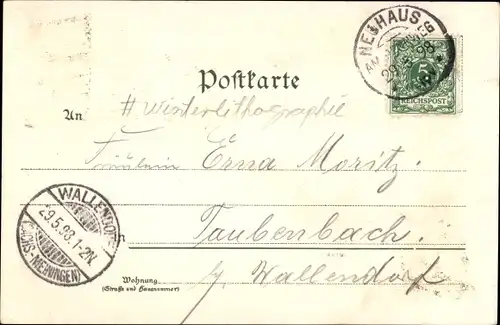 NEUHAUS
AM RENNWEG
REICHSPOST
Postkarte
An
#Winterlithographie
Fräulein Erna Moritz.
Taubenbach.
b/ Wallendorf
WALLENDORF
29.5.98.1-2N.
(SACHS-MEININGEN)
Wohnung
(Straße und Hausnummer)